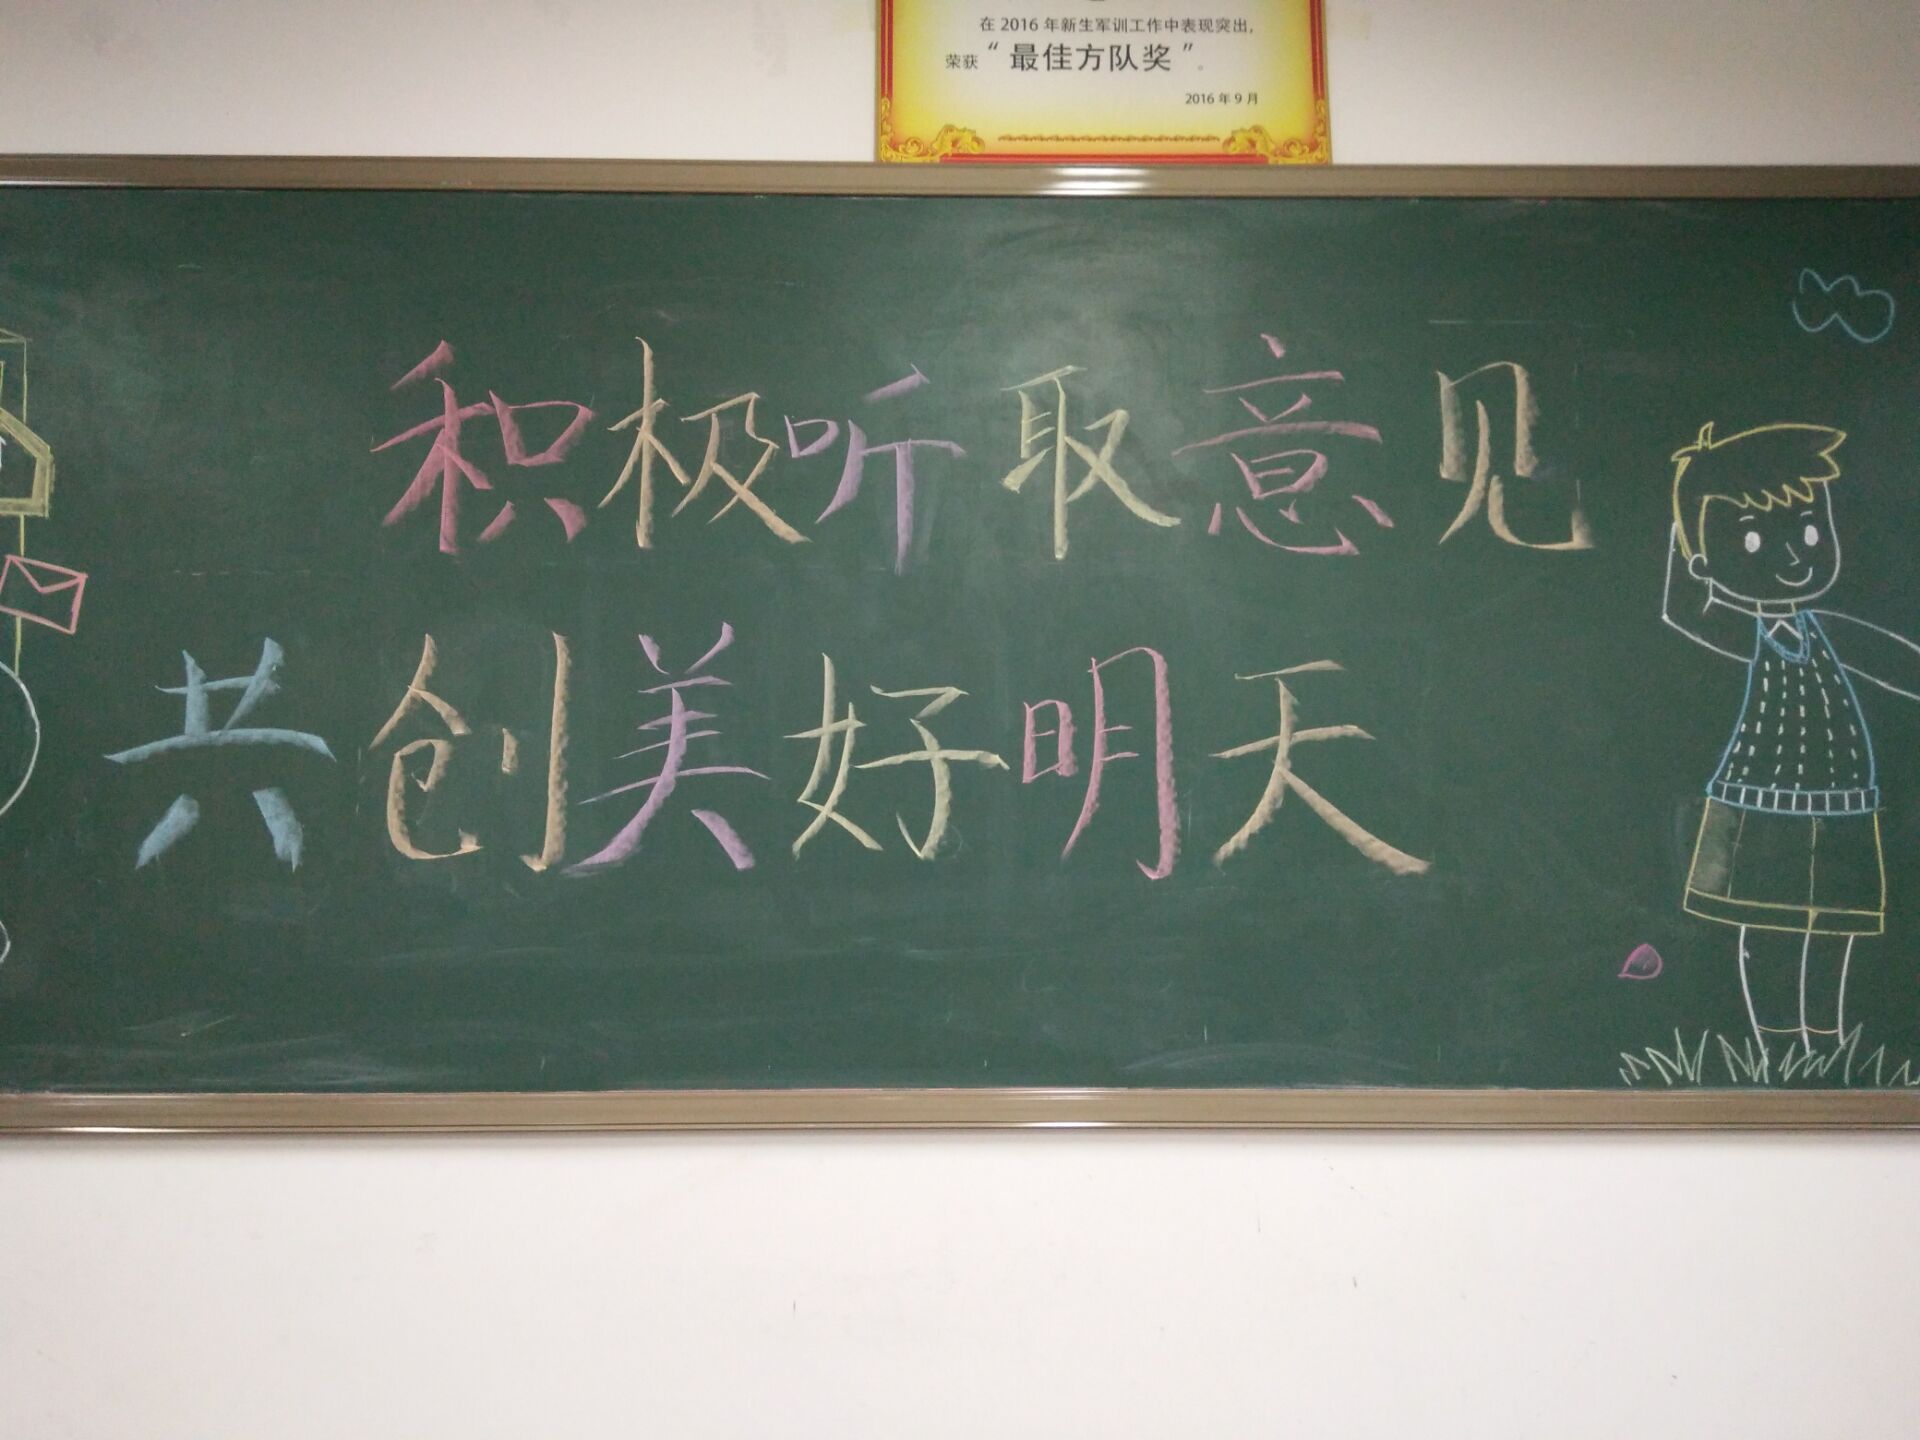 在2016年新生军训工作中表现突出，
荣获“最佳方队奖”。
2016年9月
积极听取意见
共创美好明天